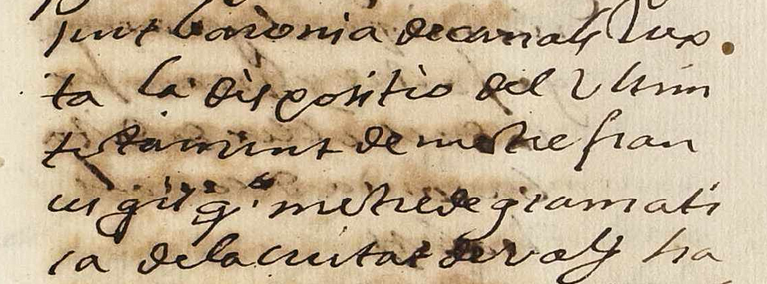 baronia de canals Iux
ta la dispositio del Ultim
testament de mestre fran
ces gil q.º mestre de gramati
ca dela ciutat de val.ª ha